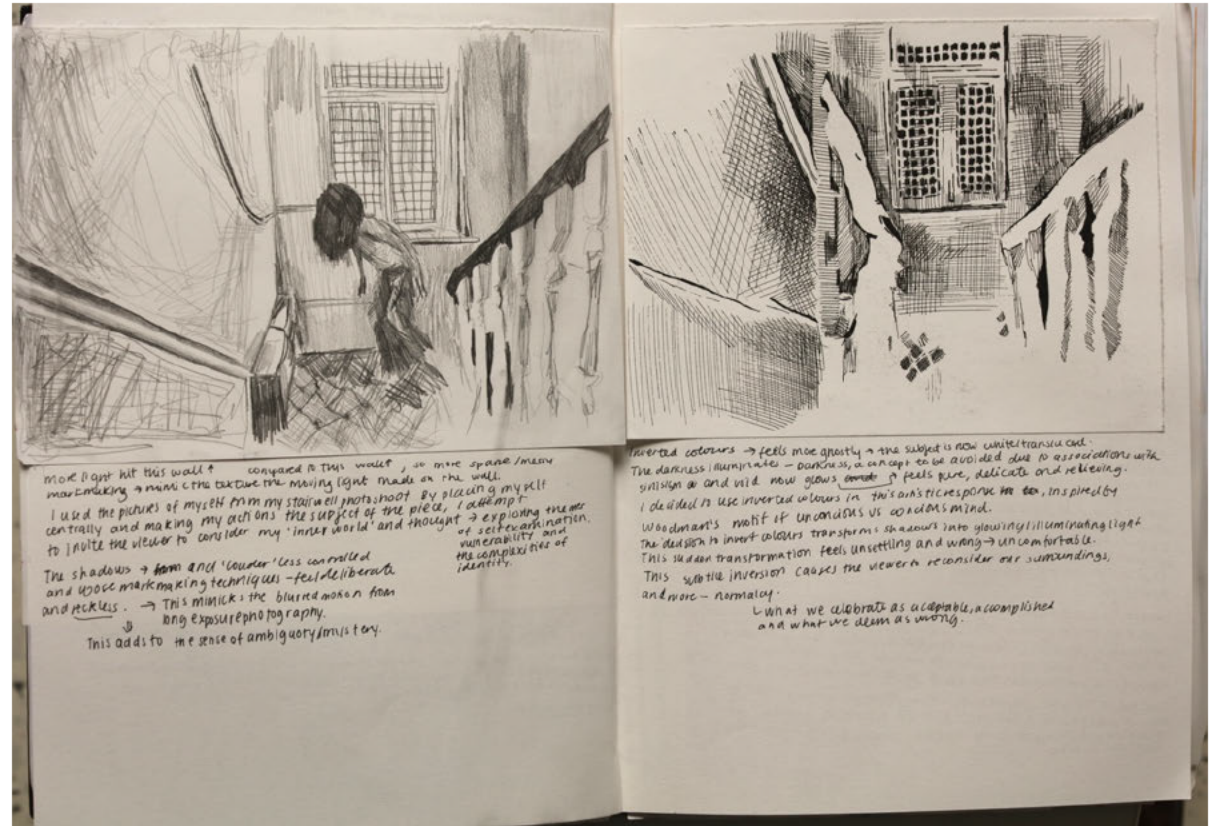 more light hit this wall ↑ compared to this wall ↑, so more sparse/messy
markmaking → mimic the texture the moving light made on the wall.
I used the pictures of myself from my stairwell photoshoot. By placing myself
centrally and making my actions the subject of the piece, I attempt
to invite the viewer to consider my 'inner world' and thought → exploring themes
of self examination,
vulnerability and
the complexities of
identity.
The shadows → and 'louder' less controlled
and loose markmaking techniques - feel deliberate
and reckless. → This mimicks the blurred motion from
long exposure photography.
This adds to the sense of ambiguoty/mystery.
Inverted colours → feels more ghostly → the subject is now white/translucent.
The darkness illuminates - Darkness, a concept to be avoided due to associations with
and void now glows feels pure, delicate and relieving.
I decided to use inverted colours in this artistic response, inspired by
Woodman's motif of unconcious vs concious mind.
The decision to invert colours transforms shadows into glowing/illuminating light
This sudden transformation feels unsettling and wrong → uncomfortable.
This subtle inversion causes the viewer to reconsider our surroundings,
and more - normalcy.
what we celebrate as acceptable, accomplished
and what we deem as wrong.